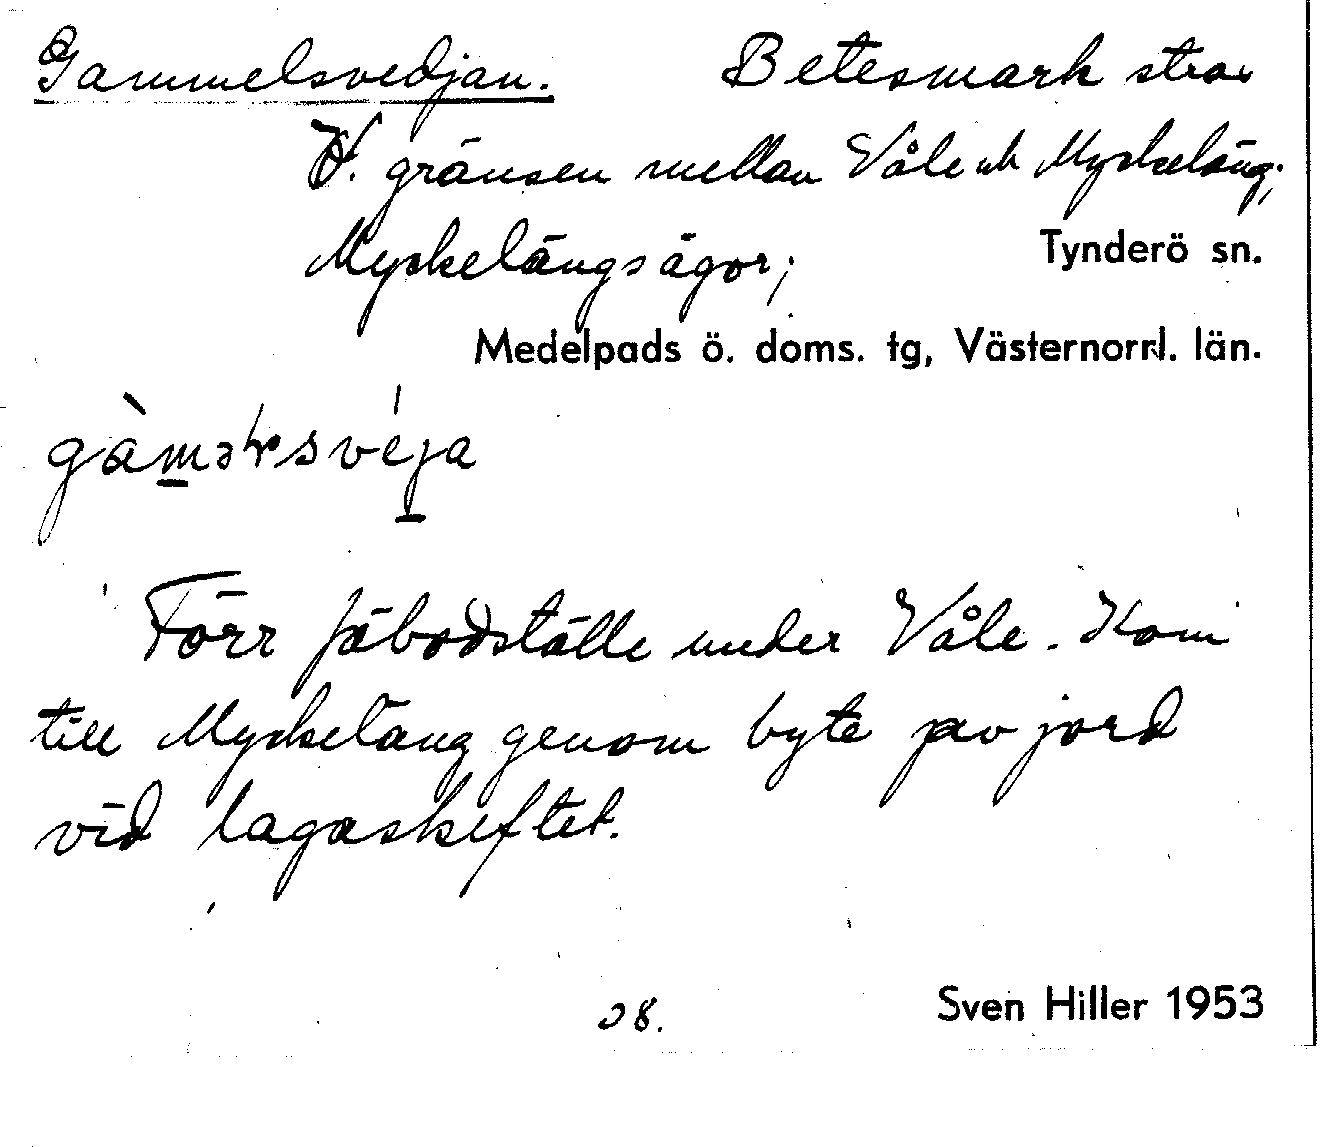 Gammelsvedjan. Betesmark strax
V. gränsen mellan Våle och Myckeläng;
Myckelängsägor; Tynderö sn.
Medelpads ö. doms. tg, Västernorrl. län.
Förr fäbodställe under Våle. Kom
till Myckeläng genom byte av jord
vid lagaskiftet.
Sven Hiller 1953